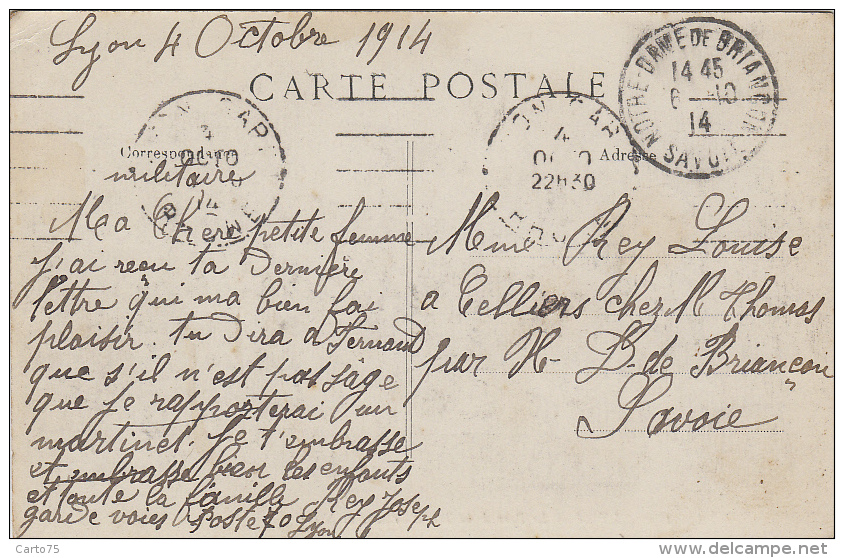 Lyon 4 Octobre 1914
CARTE POSTALE
Correspondance
Adresse
militaire
Ma Chère petite femme
j'ai reçu ta Dernière
lettre qui ma bien fai
plaisir. tu Dira a Fernand
que s'il n'est pas sage
que je rapporterai un
martinet. Je t'embrasse
et embrasse bien les enfants
et toute la famille Rey Joseph
garde voies Poste 70 Lyon
Mme Rey Louise
a Celliers chez M Thomas
par N. D. de Briançon
Savoie
NOTRE-DAME DE BRIANÇON
14 45
6 -10
14
SAVOIE
LYON GARE
4
OCTO
14
LYON GARE
4
OCTO
22H30
Carto75
delcampe.net